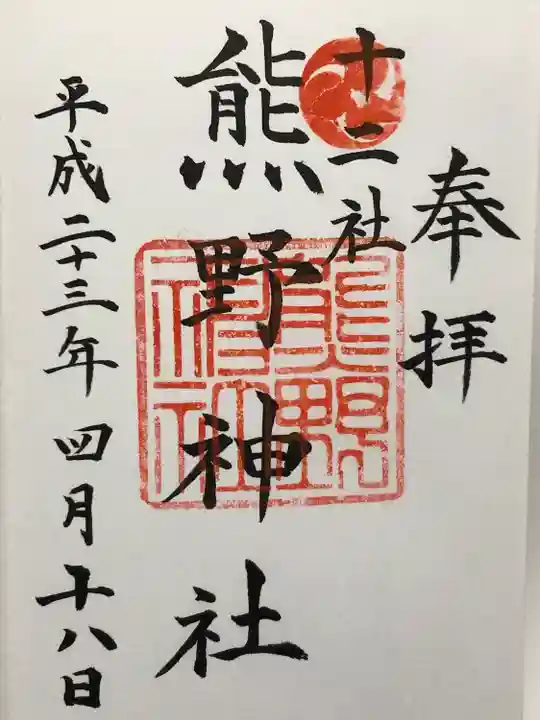 奉拝
十二社
熊野神社
平成二十三年四月十八日
熊野
神社